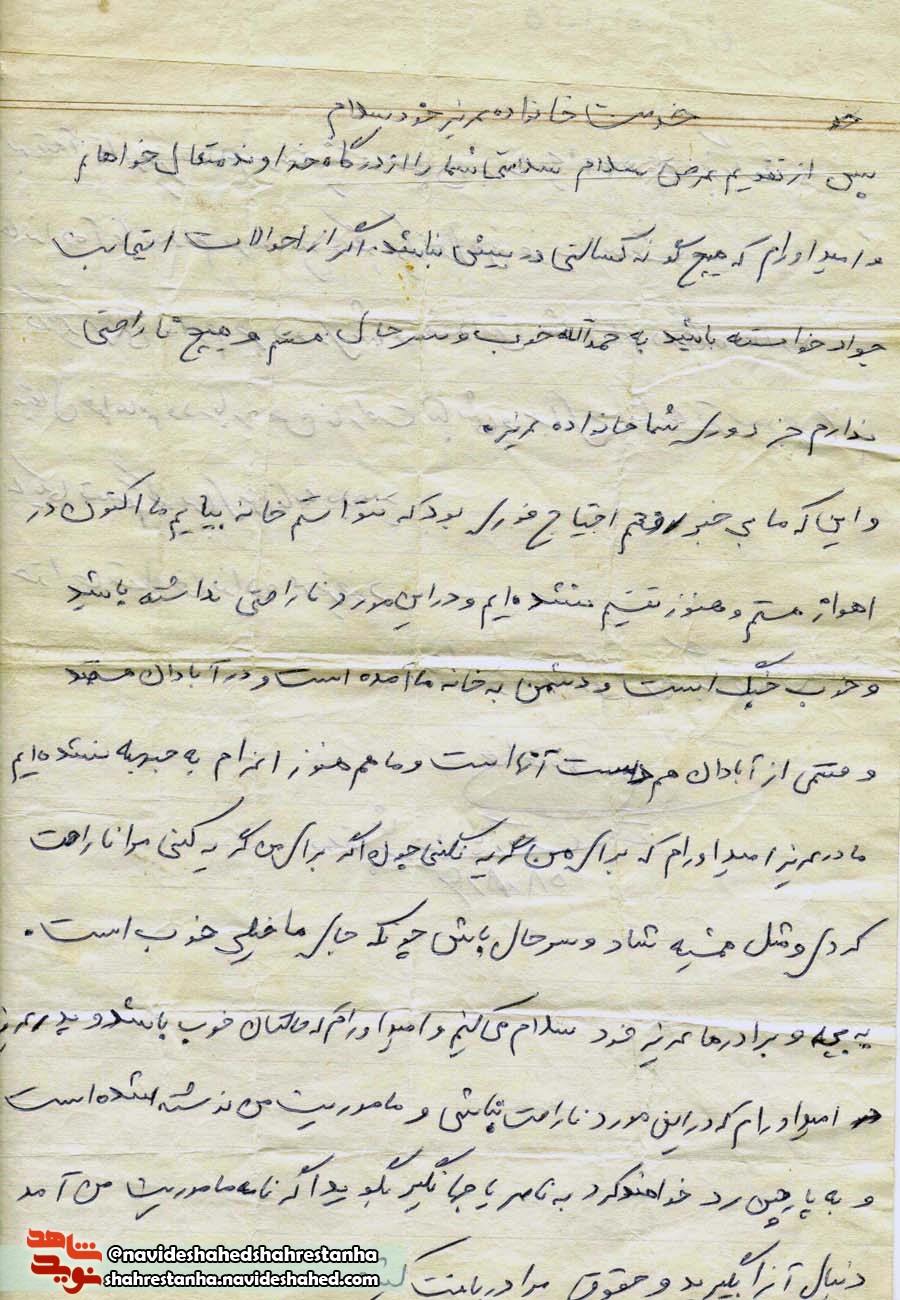 خدمت خانواده عزیز خود سلام
پس از تقدیم عرض سلام سلامتی شما را از درگاه خداوند متعال خواهانم
و امیداورام که هیچ گونه کسالتی در بیش نباشد. اگر از احوالات اینجانب
جواد خواسته باشید به حمدالله خوب و سرحال هستم و هیچ ناراحتی
ندارم جز دوری شما خانواده عزیزه
و این که ما بی خبر رفتم احتیاج فوری بود که نتواستم خانه بیایم ما اکنون در
اهواز هستم و هنوز تقسیم نشده ایم و در این مورد ناراحتی نداشته باشید
و خوب جنگ است و دشمن به خانه ما آمده است و در آبادان هستند
و قسمتی از آبادان هم دست آنها است و ما هم هنوز اعزام به جبهه نشده ایم
مادر عزیز امیداورام که برای من گریه نکنی چون اگر برای من گریه کنی مرا ناراحت
کردی و مثل همشیه شاد و سرحال باش چونکه جای ما خیلی خوب است.
به بچه و برادرها عزیز خود سلام می کنیم و امیداورام که حالتان خوب باشد و پدر عزیز
امیداورام که در این مورد ناراحت نباشی و ماموریت من نوشته شده است
و به پارچین رد خواهند کرد به ناصر یا جهانگیر بگوید اگه نامه ماموریت من آمد
دنبال آنرا بگیرید و حقوق مرا دریافت
شاهد
نوید
@navideshahedshahrestanha
shahrestanha.navideshahed.com